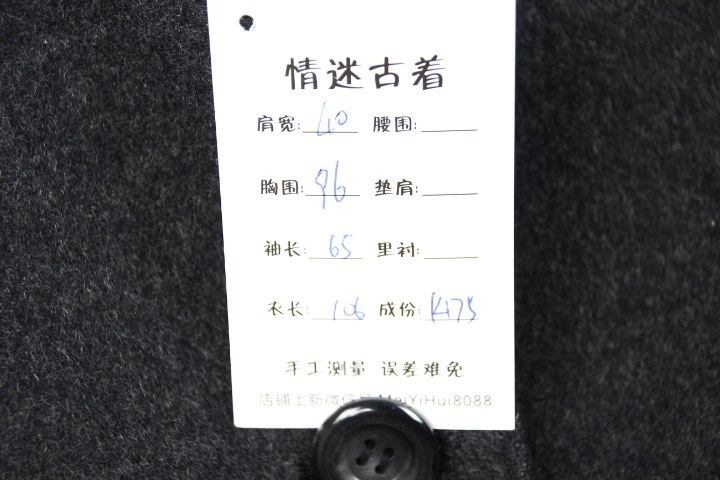 情迷古着
肩宽: 40 腰围:
胸围: 96 垫肩:
袖长: 65 里衬:
衣长: 106 成份:
手工测量 误差难免
店铺上新微信号:MeiYiHui8088